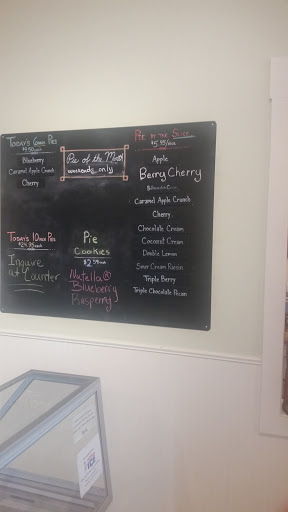 Today's 6inch Pies
$9.50/each
Blueberry
Caramel Apple Crumb
Cherry
Pie of the Month
weekends only
Pie by the Slice
$5.95/slice
Apple
Berry Cherry
Caramel Apple Crumb
Cherry
Chocolate Cream
Coconut Cream
Double Lemon
Sour Cream Raisin
Triple Berry
Triple Chocolate Pecan
Today's 10inch Pies
$24.95/each
Inquire
at Counter
Pie
Cookies
$2.50/each
Nutella®
Blueberry
Rasperry